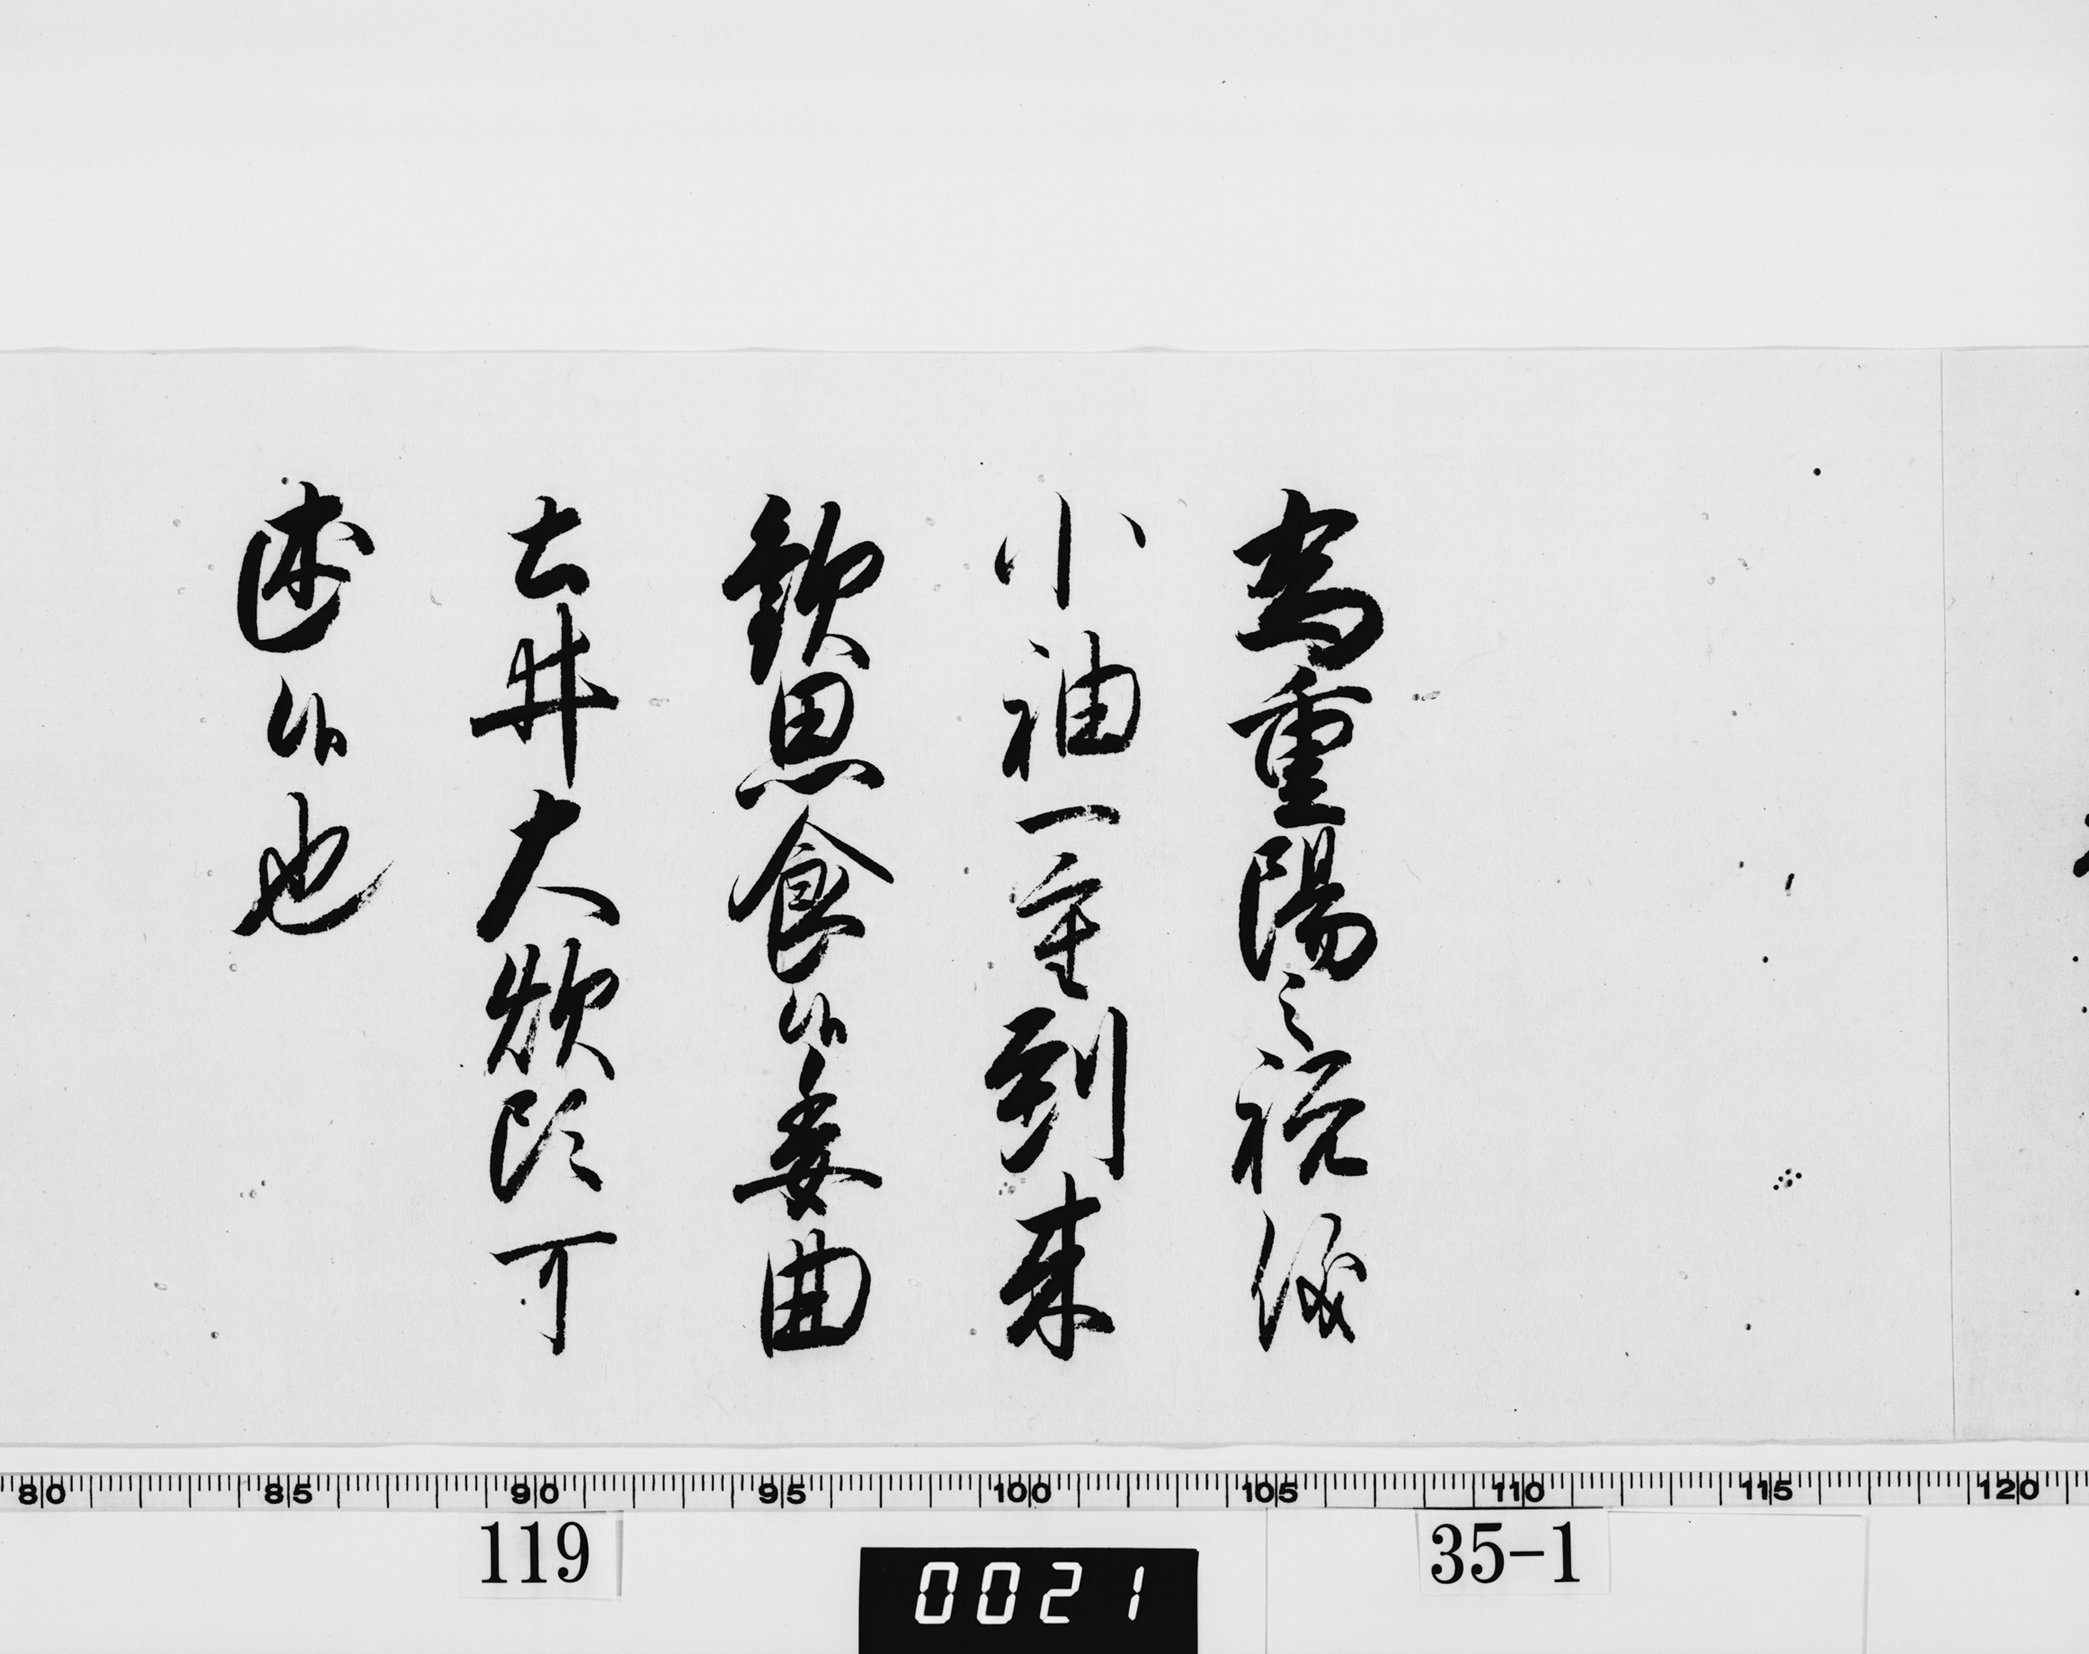 為重陽之祝儀
小袖一重到来
歓思食候委曲
土井大炊頭可
述候也
80 85 90 95 100 105 110 115 120
119
0021
35-1